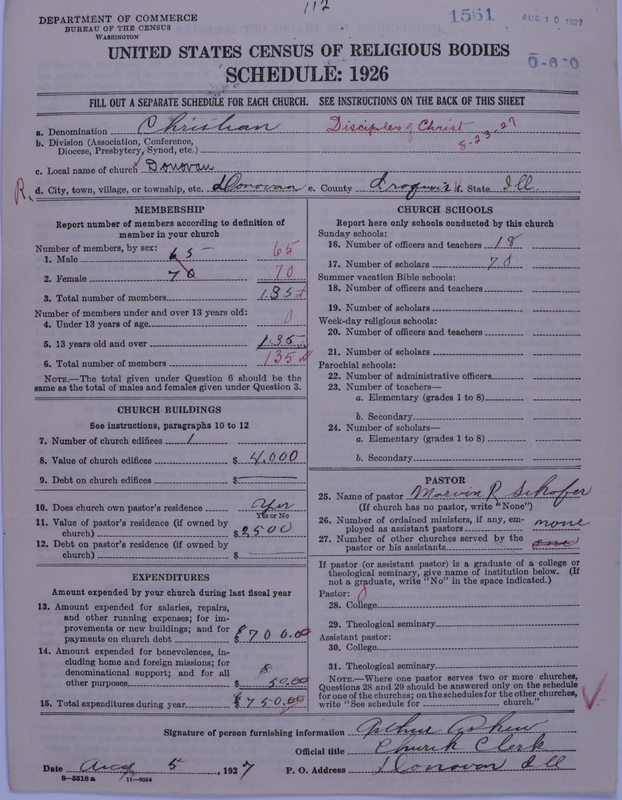 112
DEPARTMENT OF COMMERCE
BUREAU OF THE CENSUS
WASHINGTON
1561
AUG 10 1927
0-6 0
UNITED STATES CENSUS OF RELIGIOUS BODIES
SCHEDULE: 1926
FILL OUT A SEPARATE SCHEDULE FOR EACH CHURCH. SEE INSTRUCTIONS ON THE BACK OF THIS SHEET
a. Denomination Christian Disciples of Christ
b. Division (Association, Conference, Diocese, Presbytery, Synod, etc.) 5-23-27
c. Local name of church Donovan
R. d. City, town, village, or township, etc. Donovan e. County Iroquois f. State Ill.
MEMBERSHIP
Report number of members according to definition of
member in your church
Number of members, by sex:
1. Male 65 65
2. Female 70 70
3. Total number of members 135
Number of members under and over 13 years old:
4. Under 13 years of age 0
5. 13 years old and over 135
6. Total number of members 135
NOTE.—The total given under Question 6 should be the
same as the total of males and females given under Question 3.
CHURCH BUILDINGS
See instructions, paragraphs 10 to 12
7. Number of church edifices 1
8. Value of church edifices $ 4,000
9. Debt on church edifices $
10. Does church own pastor's residence? Yes
Yes or No
11. Value of pastor's residence (if owned by
church) $ 2500
12. Debt on pastor's residence (if owned by
church) $
EXPENDITURES
Amount expended by your church during last fiscal year
13. Amount expended for salaries, repairs,
and other running expenses; for im-
provements or new buildings; and for
payments on church debt $ 700.00
14. Amount expended for benevolences, in-
cluding home and foreign missions; for
denominational support; and for all
other purposes $ 50.00
15. Total expenditures during year $ 750.00
CHURCH SCHOOLS
Report here only schools conducted by this church
Sunday schools:
16. Number of officers and teachers 18
17. Number of scholars 70
Summer vacation Bible schools:
18. Number of officers and teachers
19. Number of scholars
Week-day religious schools:
20. Number of officers and teachers
21. Number of scholars
Parochial schools:
22. Number of administrative officers
23. Number of teachers—
a. Elementary (grades 1 to 8)
b. Secondary
24. Number of scholars—
a. Elementary (grades 1 to 8)
b. Secondary
PASTOR
25. Name of pastor Marvin R
(If church has no pastor, write "None")
26. Number of ordained ministers, if any, em-
ployed as assistant pastors none
27. Number of other churches served by the
pastor or his assistants one
If pastor (or assistant pastor) is a graduate of a college or
theological seminary, give name of institution below. (If
not a graduate, write "No" in the space indicated.)
Pastor:
28. College 0
29. Theological seminary
Assistant pastor:
30. College
31. Theological seminary
NOTE.—Where one pastor serves two or more churches,
Questions 28 and 29 should be answered only on the schedule
for one of the churches; on the schedules for the other churches,
write "See schedule for church."
Signature of person furnishing information
Official title Church Clerk
Date Aug 5, 1927 P. O. Address Donovan Ill
8-5518 a 11-9064